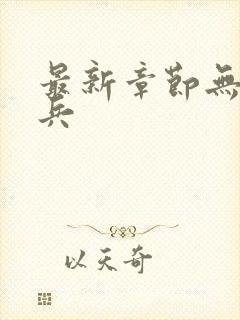 最新章節無
兵
以天奇